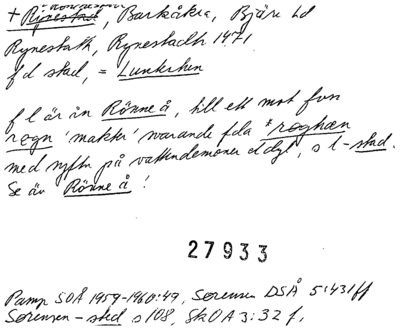 + Rynestad, Barkåkra, Bjäre hd
Rynestath, Rynestadh 1471
f d stad, = Luntertun
f l är ån Rönne å, till ett mot fvn
rogn 'makter' svarande fda *roghæn
med syftn på vattendemoner el dyl, s l -stad.
Se äv Rönne å!
27933
Pamp SOÅ 1959-1960:49, Sørensen DSÅ 5:431ff
Sørensen -sted s 108, SkOA 3:32 f,